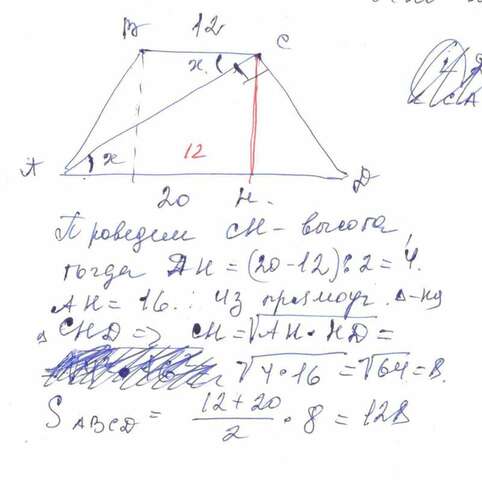 B 12 C
x
A x 12 D
20 H.
Проведем CH - высота,
тогда DH = (20-12):2 = 4.
AH = 16. Из прямоуг. Δ-ка
CHD => CH = √AH·HD =
√4·16 = √64 = 8.
S ABCD = 12+20/2 · 8 = 128